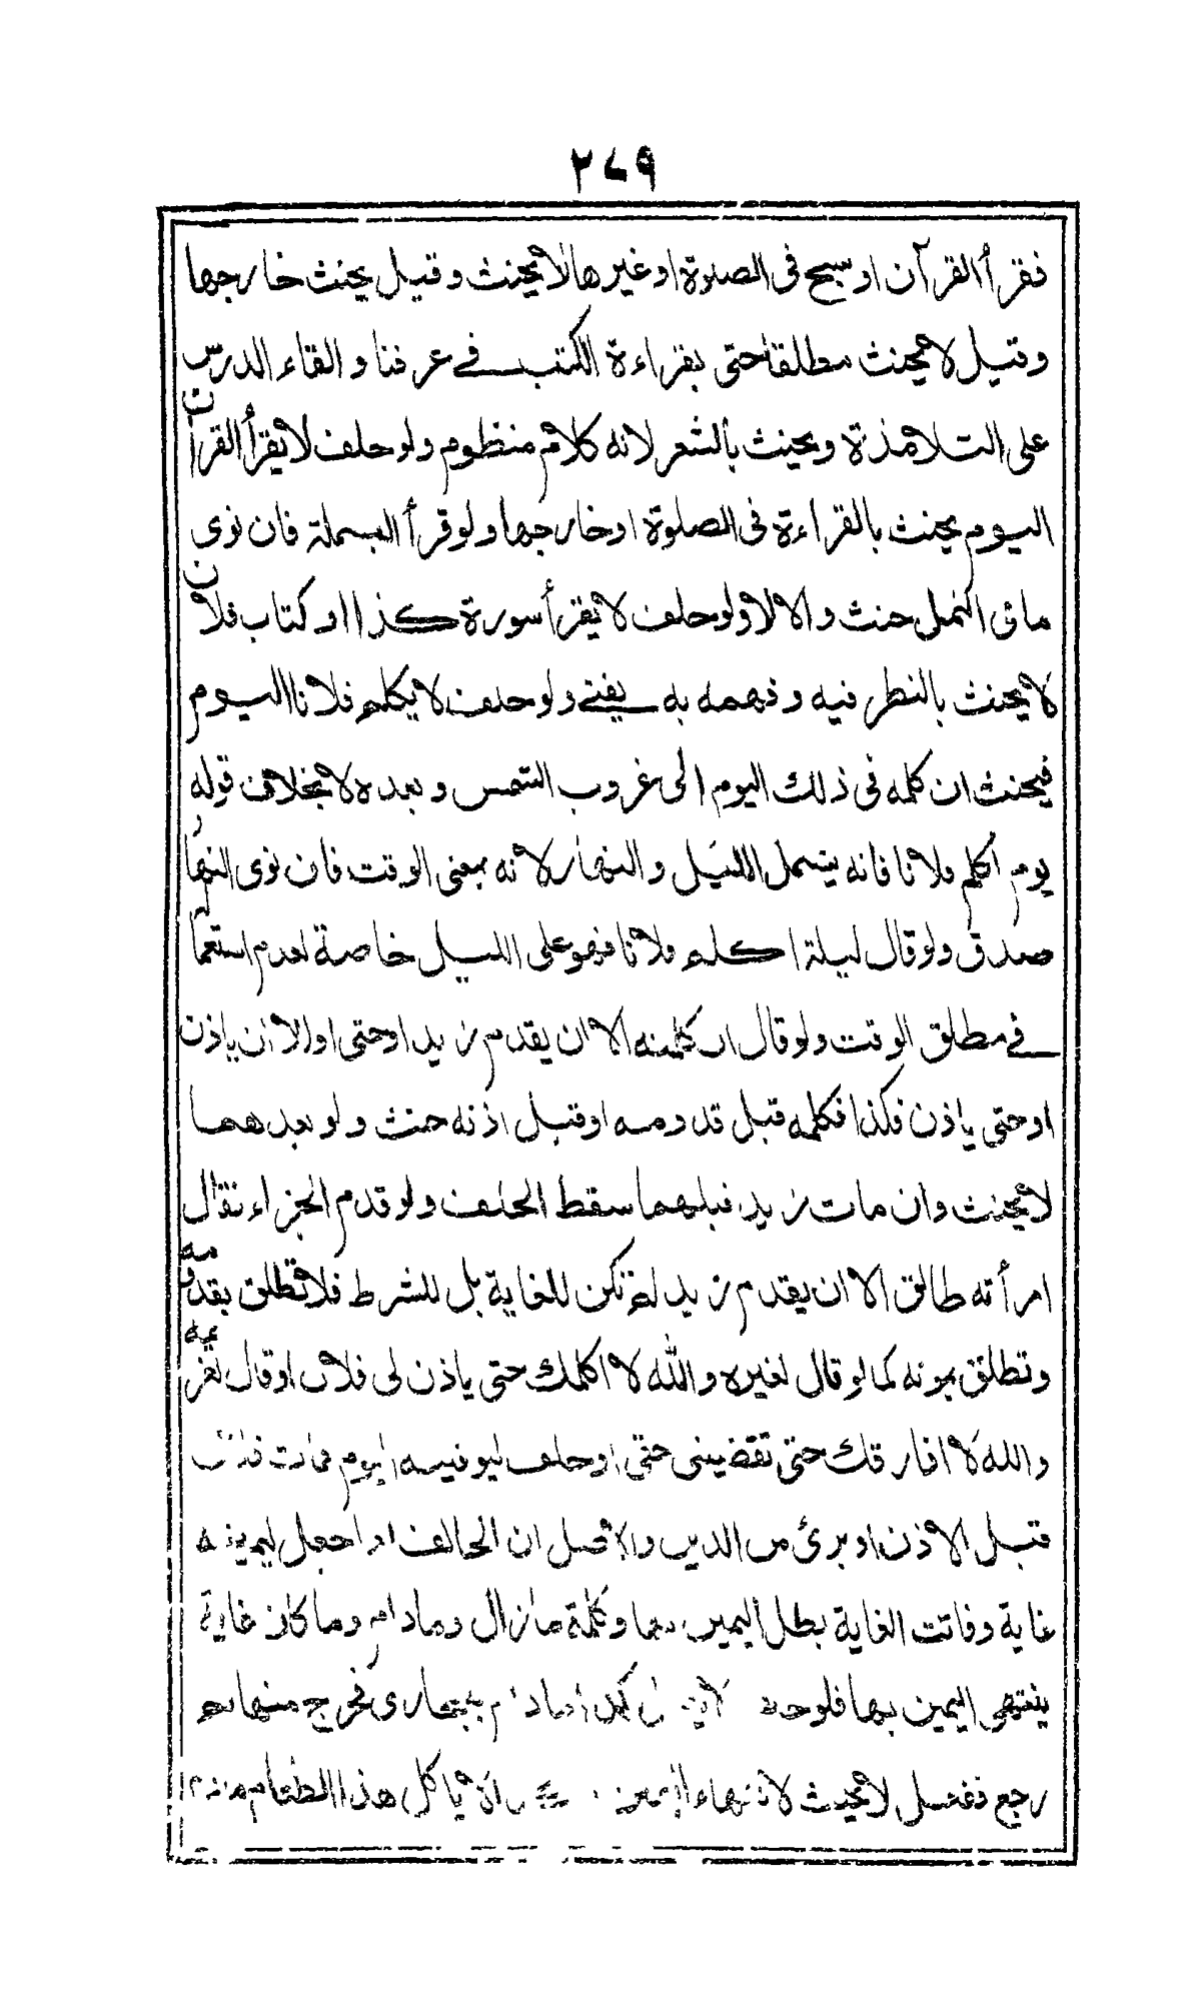 ٢٤٩
فقرأ القرآن او سبح فى الصلوة او غيرها لا يحنث وقيل يحنث خارجها
وقيل لا يحنث مطلقا حتى بقراءة الكتب فے عرفنا والقاء الدرس
على التلامذة ويحنث بالشعر لانه كلام منظوم ولو حلف لا يقرأ القرآن
اليوم يحنث بالقراءة فى الصلوة او خارجها ولو قرأ البسملة فان نوى
مافى النمل حنث والا لا ولو حلف لا يقرأ سورة كذا او كتاب فلان
لا يحنث بالنظر فيه وفهمه به يفتے ولو حلف لا يكلم فلانا اليوم
فيحنث ان كلمه فى ذلك اليوم الى غروب الشمس وبعده لا بخلاف قوله
يوم اكلم فلانا فانه يشمل الليل والنهار لانه بمعنى الوقت فان نوى النهار
صدق ولو قال ليلة اكلم فلانا فهو على الليل خاصة لعدم استعما
فے مطلق الوقت ولو قال ان كلمته الا ان يقدم زيد او حتى او الا ان ياذن
او حتى ياذن فكذا فكلمه قبل قدومه او قبل اذنه حنث ولو بعدهما
لا يحنث وان مات زيد قبلهما سقط الحلف ولو قدم الجزاء فقال
امرأته طالق الا ان يقدم زيد لم تكن للغاية بل للشرط فلا تطلق بقدومه
وتطلق بموته كما لو قال لغيره والله لا اكلمك حتى ياذن لى فلان او قال لغريمه
والله لا افارقك حتى تقضينى حقى او حلف ليوفينه اليوم فمات فلان
قبل الاذن او برئ من الدين والاصل ان الحالف اذا جعل ليمينه
غاية وفاتت الغاية بطل اليمين وكلمة مازال ومادام وماكان غاية
ينتهى اليمين بها فلو حلف لا يفعل كذا مادام ببخارى فخرج منها ثم
رجع ففعل لا يحنث لانتهاء اليمين لا ياكل هذا الطعام مادام